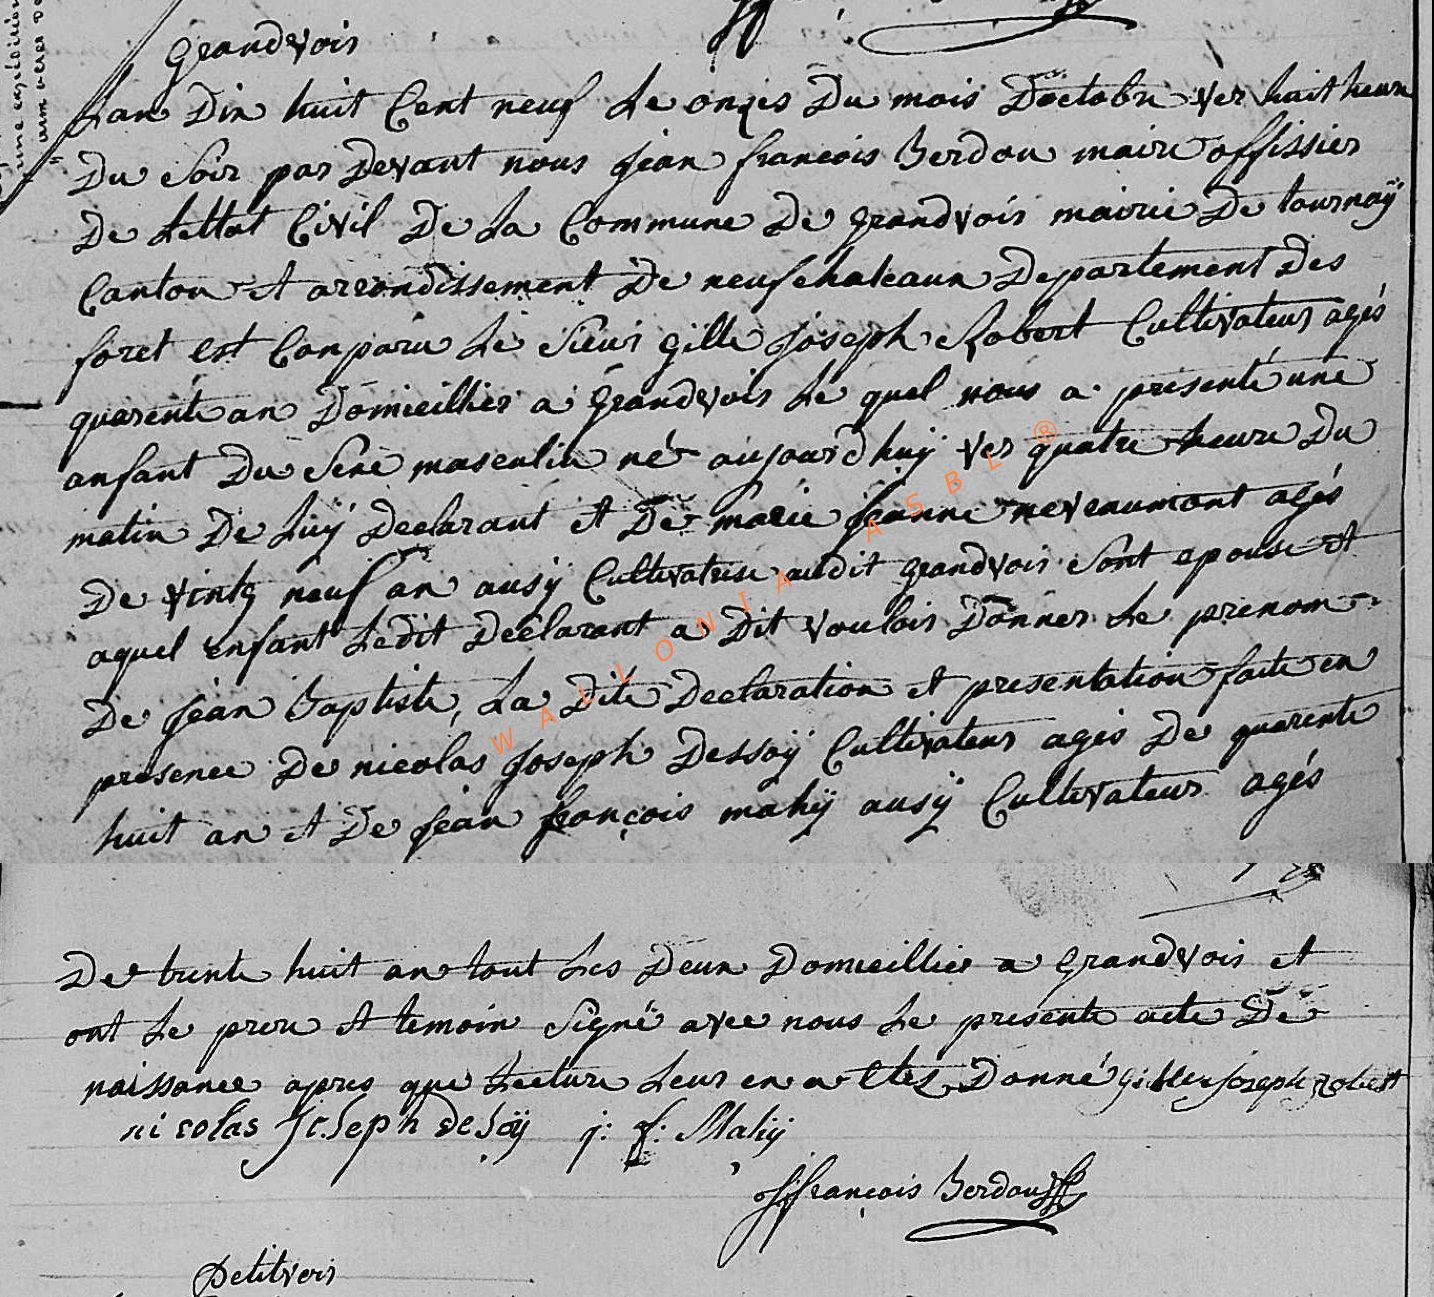 Grandvois
Lan Dix huit Cent neuf Le onzies Du mois Doctobre ver huit heure
Du Soir par Devant nous jean francois Berdou maire offissier
De Lettat Civil De La Commune De grandvois mairie De tournaÿ
Canton et arrondissement De neufchateaux Departement Des
foret est Conparu Le Sieur gille joseph Robert Cultivateur agés
quarente an Domicillier a grandvois Le quel nous a presenté une
anfant Du Sexe masculin né aujourdhuÿ ver quatre heure Du
matin De Luÿ Declarant et De marie jeanne neveaumont agés
De vintg neuf an ausÿ Cultivatrise audit grandvois Sont epouse et
aquel enfant Ledit Declarant a Dit vouloir Donner Le prenom
De jean Baptiste, La Dite Declaration et presentation faite en
presence De nicolas joseph Dessoÿ Cultivateur ages De quarente
huit an et De jean françois mahÿ ausÿ Cultivateur agés
De trente huit an tout Les Deux Domicillier a grandvois et
ont Le pere et temoin Signé avec nous Le presente acte De
naissance apres que Lecture Leur en a etes Donné gilles joseph robert
nicolas Joseph deSoÿ j: f: Mahÿ
jfrançois Berdou
Petitvoir
une expédition
WALLONIA ASBL ®